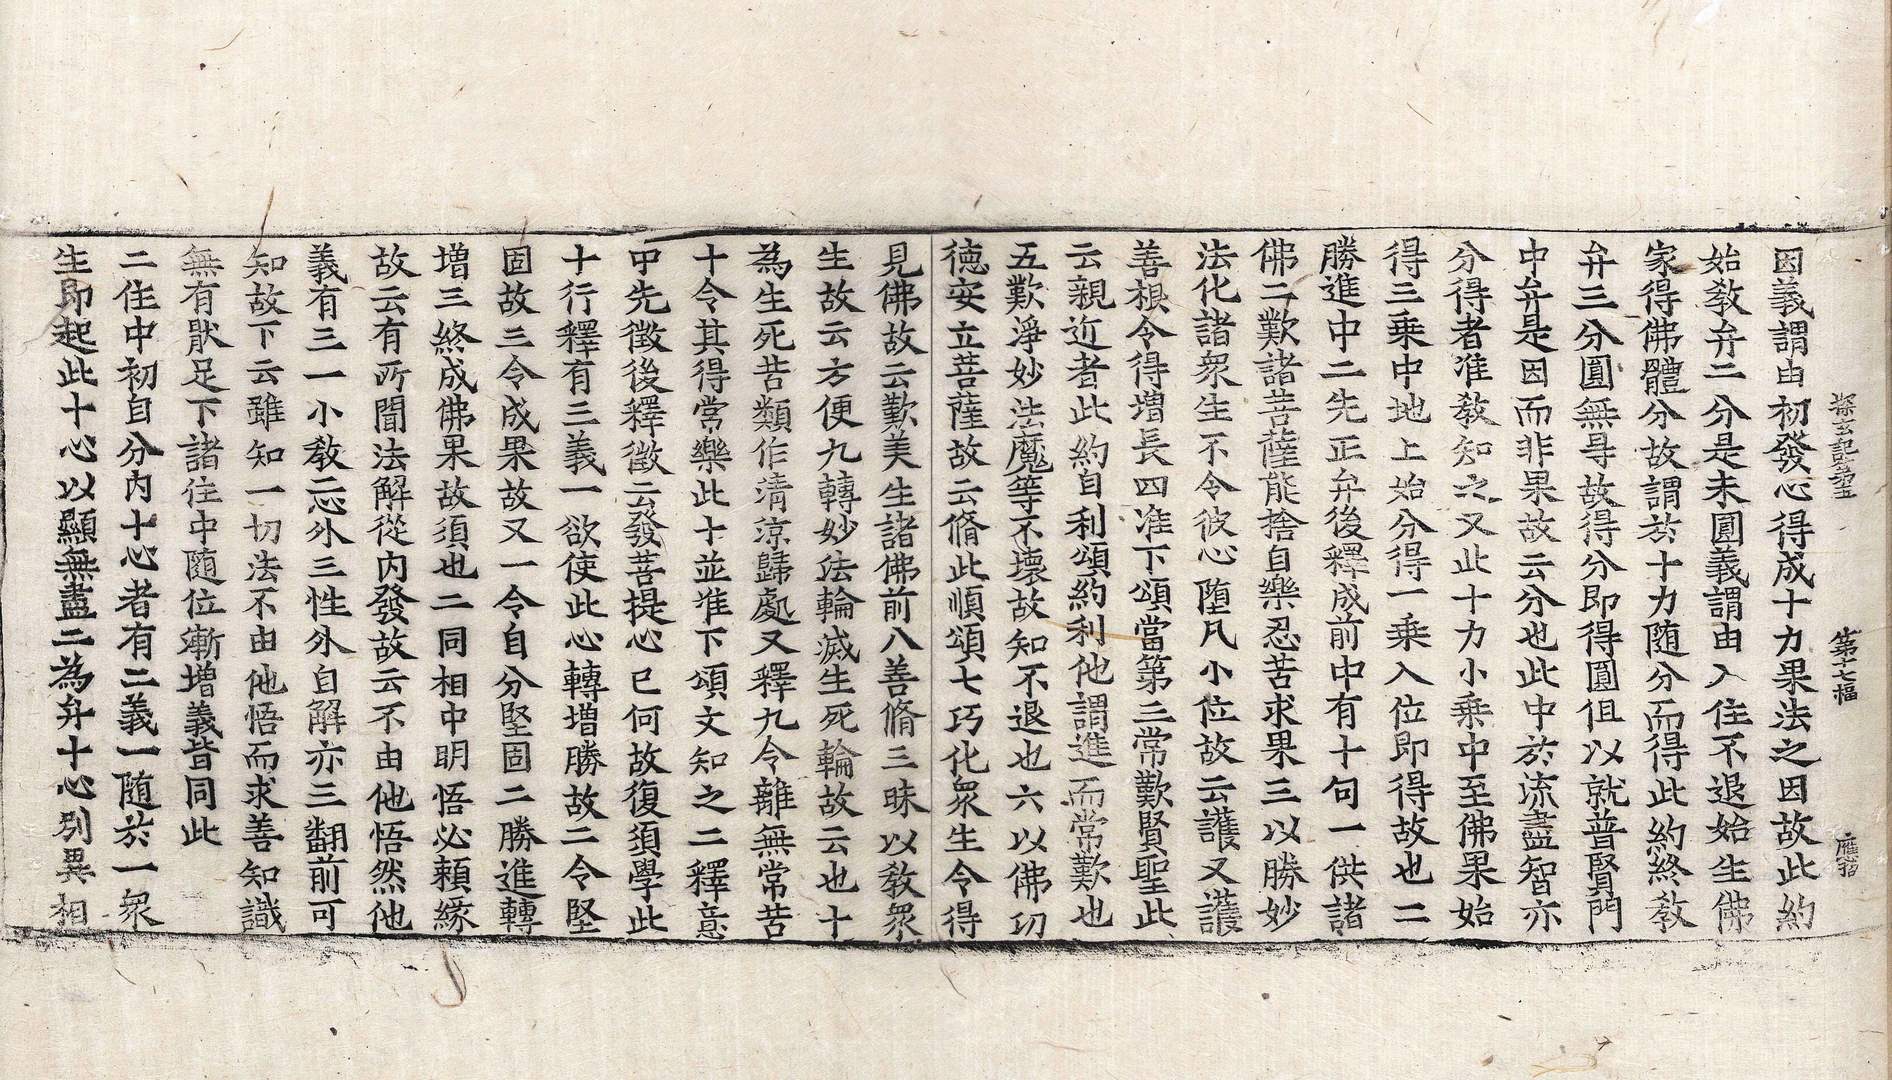 探玄記第五 第十七幅 應當
因義謂由初發心得成十力果法之因故此約
始教弁二分是未圓義謂由入住不退始生佛
家得佛體分故謂於十力随分而得此約終教
弁三分圓無导故得分即得圓但以就普賢門
中弁是因而非果故云分也此中於流盡智亦
分得者准教知之又此十力小乗中至佛果始
得三乗中地上始分得一乗入位即得故也二
勝進中二先正弁後釋成前中有十句一供諸
佛二歎諸菩薩能捨自樂忍苦求果三以勝妙
法化諸衆生不令彼心堕凡小位故云護又護
善根令得増長四准下頌當第三常歎賢聖此
云親近者此約自利頌約利他謂進而常歎也
五歎淨妙法魔等不壊故知不退也六以佛功
徳安立菩薩故云脩此順頌七巧化衆生令得
見佛故云歎美生諸佛前八善脩三昧以教衆
生故云方便九轉妙法輪滅生死輪故云也十
為生死苦類作清涼歸處又釋九令離無常苦
十令其得常樂此十並准下頌文知之二釋意
中先徴後釋徴云發菩提心已何故復須學此
十行釋有三義一欲使此心轉増勝故二令堅
固故三令成果故又一令自分堅固二勝進轉
増三終成佛果故須也二同相中明悟必頼緣
故云有所聞法解從内發故云不由他悟然他
義有三一小教二心外三性外自解亦三翻前可
知故下云雖知一切法不由他悟而求善知識
無有猒足下諸住中随位漸増義皆同此
二住中初自分内十心者有二義一随於一衆
生即起此十心以顯無盡二為弁十心別異相